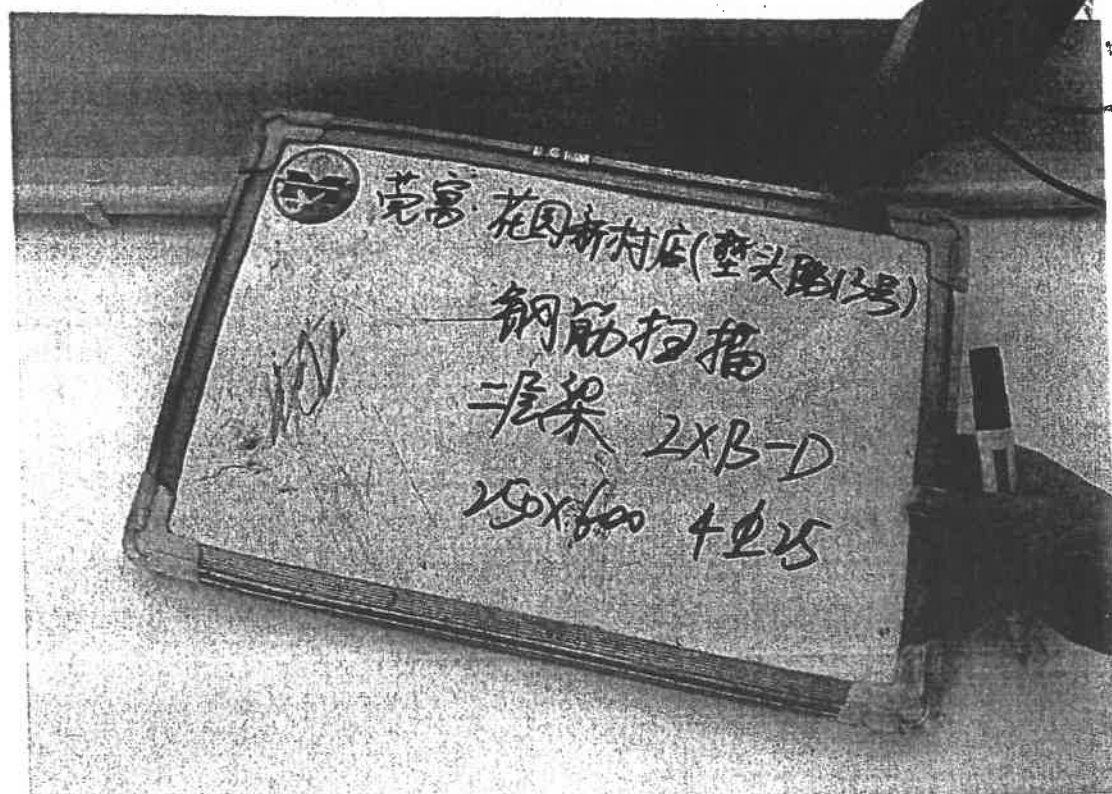 莞富 花园新村店(堑头路13号)
钢筋扫描
二层梁 2×B-D
250×600 4⌀25